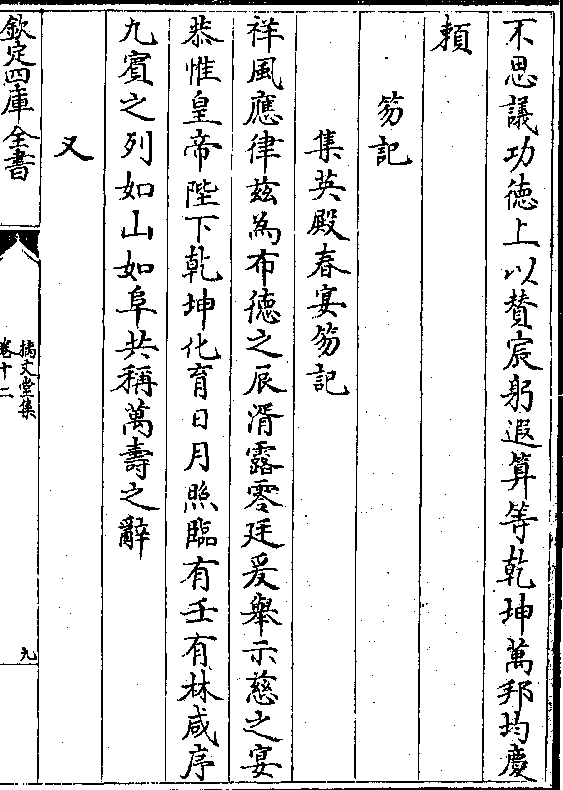 不思議功徳上以賛宸躬遐算等乾坤萬邦均慶
頼
笏記
集英殿春宴笏記
祥風應律兹為布德之辰湑露零廷爰舉示慈之宴
恭惟皇帝陛下乾坤化育日月照臨有壬有林咸序
九賓之列如山如阜共稱萬壽之辭
又
欽定四庫全書
摛文堂集
卷十二
九